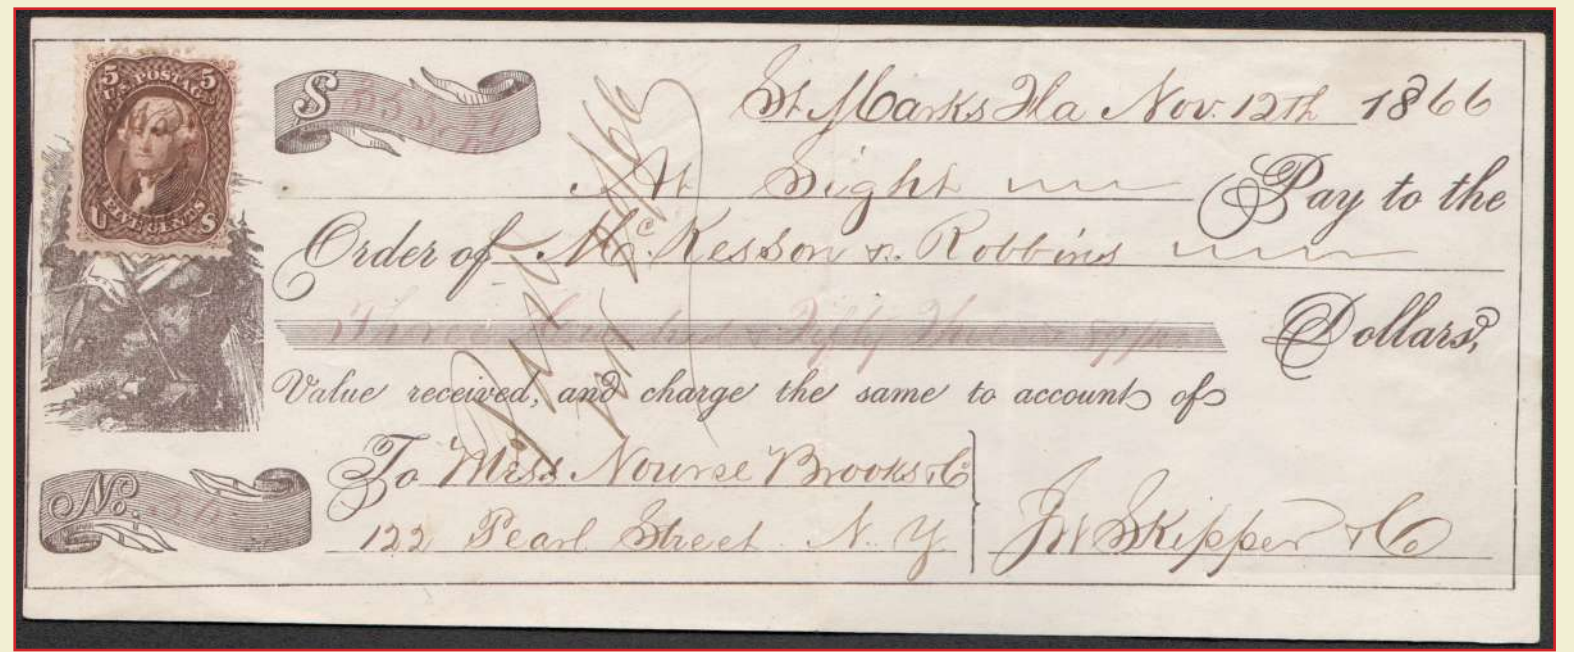 5 5
U.S. POSTAGE
FIVE CENTS
U S
$ 353.
St. Marks Fla Nov. 12th 1866
At Sight
Pay to the
Order of McKesson & Robbins
Three Hundred Fifty Three 89/100 Dollars,
Value received, and charge the same to account of
To Mess Nourse Brooks & Co
122 Pearl Street N.Y.
J W Skipper & Co
No.